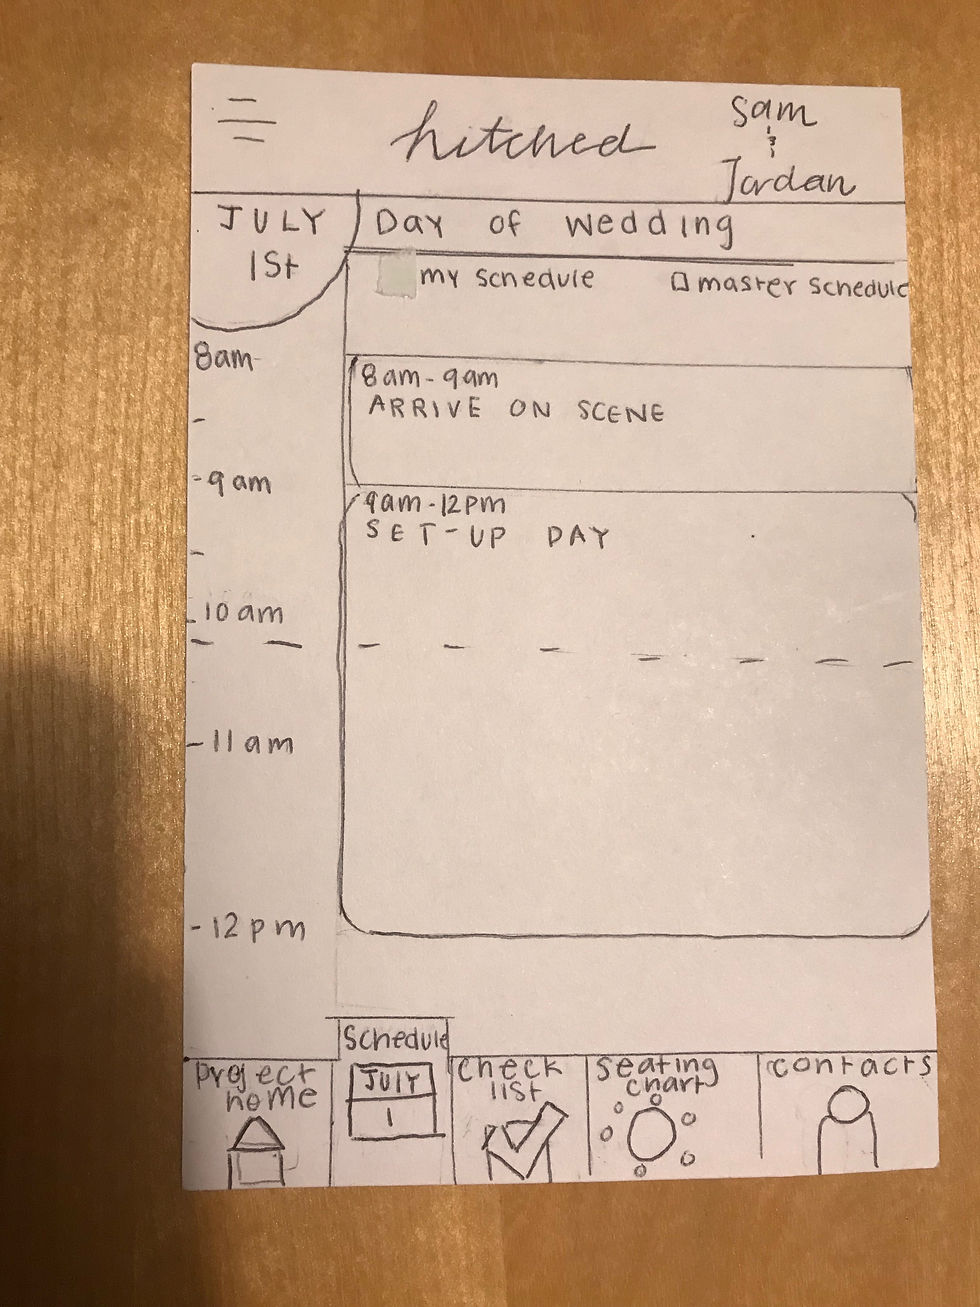 hitched
Sam
&
Jordan
JULY
1St
Day of wedding
my schedule
master schedule
8am
8am - 9am
ARRIVE ON SCENE
9am
9am - 12pm
SET-UP DAY
10am
11am
12pm
Schedule
JULY
1
project
home
check
list
seating
chart
contacts